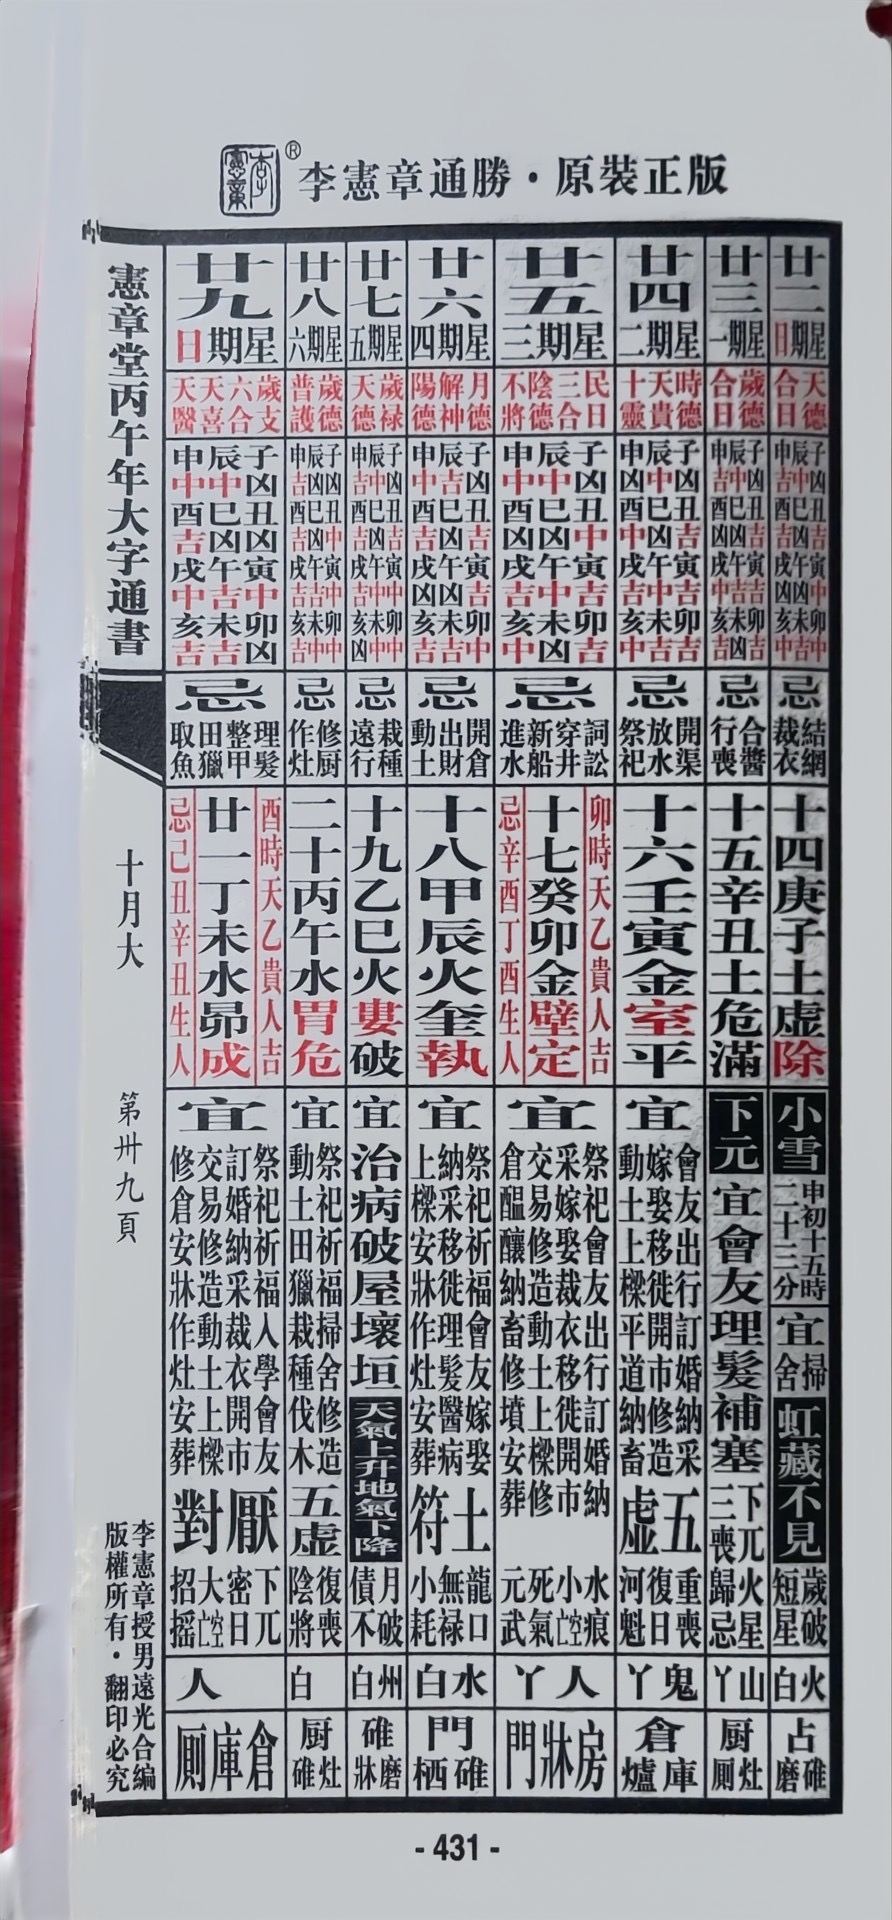 李憲章
®
李憲章通勝・原裝正版
廿二
星期日
天德
合日
子凶丑吉寅中卯中
辰中巳凶午凶未中
申吉酉吉戌凶亥中
忌
結網
裁衣
十四庚子土虛除
小雪
申初十五時
二十三分
宜
掃舍
虹藏不見
歲破
短星
火白
占碓磨
廿三
星期一
歲德
合日
子凶丑吉寅吉卯吉
辰中巳凶午吉未凶
申吉酉吉戌中亥吉
忌
合醬
行喪
十五辛丑土危滿
下元
宜會友理髮補塞
下兀
三喪
火星
歸忌
山丫
厨灶厠
廿四
星期二
時德
天貴
十靈
子凶丑吉寅吉卯吉
辰中巳凶午中未吉
申凶酉中戌吉亥中
忌
開渠
放水
祭祀
十六壬寅金室平
宜
會友出行訂婚納采
嫁娶移徙開市修造
動土上樑平道納畜
五虛
重喪
復日
河魁
鬼丫
倉庫爐
廿五
星期三
民日
三合
陰德
不將
子凶丑中寅吉卯吉
辰中巳凶午中未凶
申中酉凶戌吉亥中
忌
詞訟
穿井
新船
進水
卯時天乙貴人吉
十七癸卯金壁定
忌辛酉丁酉生人
宜
祭祀會友出行訂婚納
采嫁娶裁衣移徙開市
交易修造動土上樑修
倉醞釀納畜修墳安葬
水痕
小空亡
死氣
元武
人丫
房牀門
廿六
星期四
月德
解神
陽德
子凶丑吉寅吉卯中
辰吉巳凶午凶未吉
申中酉吉戌凶亥吉
忌
開倉
出財
動土
十八甲辰火奎執
宜
祭祀祈福會友嫁娶
納采移徙理髮醫病
上樑安牀作灶安葬
土符
龍口
無祿
小耗
水白
門碓栖
廿七
星期五
歲祿
天德
子凶丑吉寅中卯中
辰中巳凶午中未中
申吉酉吉戌吉亥凶
忌
栽種
遠行
十九乙巳火婁破
宜
治病破屋壞垣
天氣上升地氣下降
月破
債不
州白
碓磨牀
廿八
星期六
歲德
普護
子凶丑中寅中卯中
辰凶巳凶午吉未中
申吉酉吉戌吉亥吉
忌
修厨
作灶
二十丙午水胃危
宜
祭祀祈福掃舍修造
動土田獵栽種伐木
五虛
復喪
陰將
白
厨灶碓
廿九
星期日
歲支
六合
天喜
天醫
子凶丑凶寅中卯凶
辰中巳凶午吉未吉
申中酉吉戌中亥吉
忌
理髮
整甲
田獵
取魚
酉時天乙貴人吉
廿一丁未水昴成
忌己丑辛丑生人
宜
祭祀祈福入學會友
訂婚納采裁衣開市
交易修造動土上樑
修倉安牀作灶安葬
厭對
下兀
密日
大空亡
招搖
人
倉庫厠
憲章堂丙午年大字通書
十月大
第卅九頁
李憲章授男遠光合編
版權所有・翻印必究
- 431 -